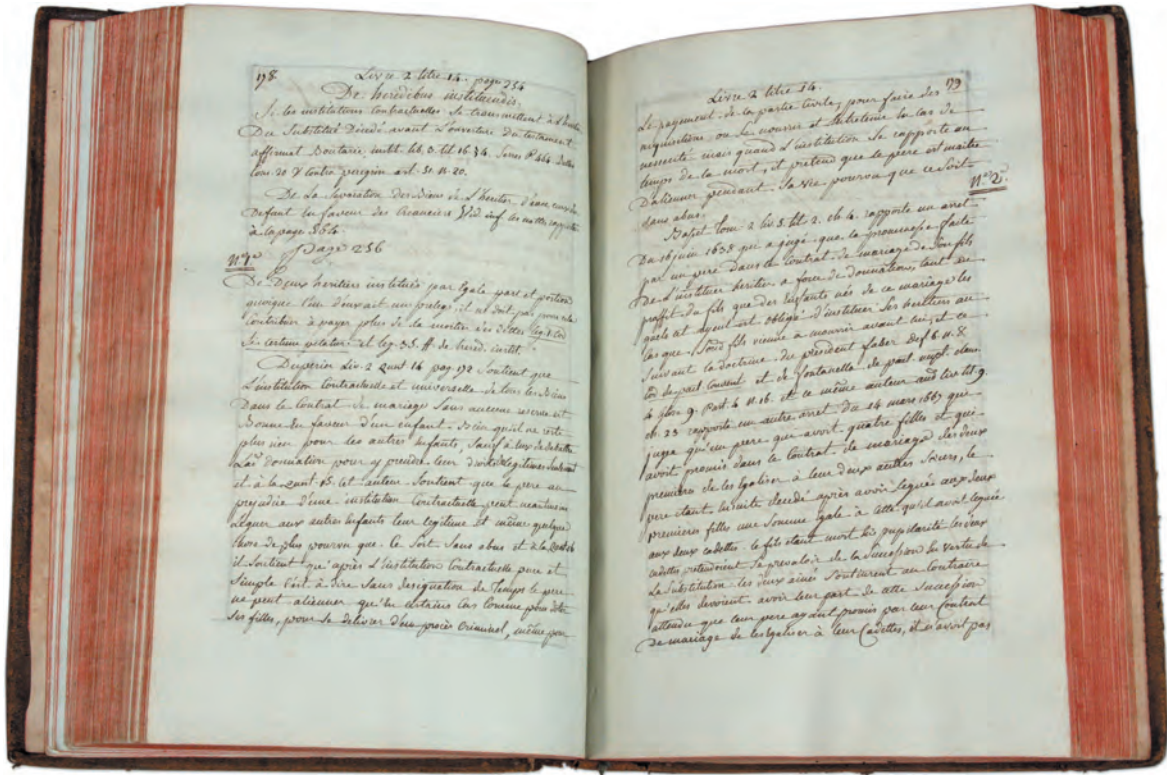 178 Livre 2 titre 14. page 254
De heredibus instituendis.
Si les institutions Contractuelles se transmettent à l'
Du Substitué Décédé avant L'ouverture Du testament
affirmat Boutaric instit. lib. 3. tit 16 §4. Serres P. 464
tom. 20 & Contra peregrin art. 31 n. 20.
De La Separation des Biens de L'heritier d'avec ceux du
Defunt En faveur des Creanciers Vid. inf. les nottes
à la page 364.
page 256
N.º 1.er
De Deux heritiers institués par Egale part et portion
quoique l'un d'eux ait un prelegs, il ne doit pas pour cela
Contribuer à payer plus de la moitié des dettes leg. 1. Cod
Si certum petatur et leg. 35. ff. de hered. instit.
Duperier Liv. 2 quest 16 pag. 192 Soutient que
L'institution Contractuelle et universelle de tous les Biens
Dans le Contrat de mariage Sans aucune reserve est
Bonne En faveur d'un enfant. Bien qu'il ne reste
plus rien pour les autres Enfants, Sauf à Eux de debattre
La donnation pour y prendre leur droit de Legitime
et à la quest. 15. Cet auteur Soutient que le pere au
prejudice d'une institution Contractuelle peut neantmoins
Leguer aux autres Enfants leur legitime Et même quelque
chose de plus pourvu que Ce Soit Sans abus et à la quest.
il Soutient qu'après L'institution Contractuelle pure et
Simple C'est à dire Sans designation de Temps le pere
ne peut alienner qu'En certains Cas Comme pour doter
Ses filles, pour Se delivrer d'un procès Criminel, même pour
Livre 2 titre 14. 179
Le payement de la partie Civile, pour faire des
acquisitions, ou Se nourrir et Entretenir En Cas de
necessité mais quand L'institution Se rapporte au
temps de la mort, il pretend que le pere est maitre
D'alienner pendant Sa Vie pourvu que ce Soit
Sans abus.
N.º 2.e
Basset Tom 2 liv 5. tit 2. ch. 4. rapporte un arret
Du 16 juin 1638 qui a jugé que la promesse faite
par un pere dans le Contrat de mariage de Son fils
De L'instituer heritier a force de donnation, tant au
proffit du fils que des Enfants nés de ce mariage les
quels cet ayeul est obligé d'instituer Ses heritiers au
Cas que Son d. fils vienne a mourrir avant lui, et ce
Suivant la doctrine du president faber def. 6. n. 8
Cod. de pact. Convent et de fontanella de pact. nupt. claus.
4 glos. 9. Part. 4 n. 16. et ce même auteur aud. liv. tit. 9.
ch. 23 rapporte un autre arret du 14 mars 1667 que
jugea qu'un pere qui avoit quatre filles et qui
avoit promis dans le Contrat de mariage des deux
premieres de les Egaliser à leur deux autres Sœurs, le
pere étant Ensuite decedé après avoir leguée aux deux
premieres filles une Somme Egale à Celle qu'il avoit leguée
aux deux cadettes. le fils étant mort En pupilarité les deux
cadettes pretendirent Se prevaloir de la Succession En Vertu de
La Substitution les deux ainées Soutinrent au Contraire
qu'elles devoient avoir leur part de cette Succession
attendu que leur pere ayant promis par leur Contrat
De mariage de les Egaliser à leur Cadettes, il n'avoit pas